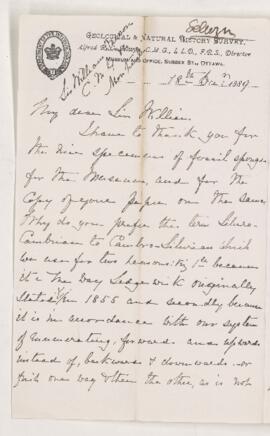 Selwyn
GEOLOGICAL & NATURAL HISTORY SURVEY.
Alfred C.M.G., LL.D., F.R.S., Director
MUSEUM AND OFFICE, SUSSEX ST., OTTAWA.
Sir William Dawson
C.M.G.
18th 1889
My dear Sir William.
I have to thank you for
the nice specimens of fossil sponges
for the Museum, and for the
Copy of your paper on the same
Why do you prefer the term Siluro-
Cambrian to Cambro-Silurian which
we use for two reasons viz 1st because
it is the way Sedgwick originally
stated it in 1855 and secondly because
it is in accordance with our system
of enumerating, forwards and upwards
instead of, backwards & downwards. or
first one way & then the other, as is not